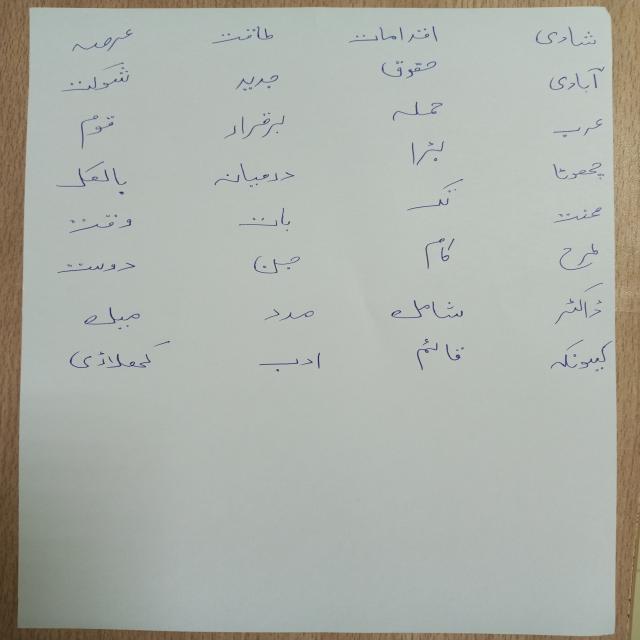 شادی اقدامات طاقت عرصہ
آبادی حقوق جدید شکایت
عرب حملہ برقرار قوم
چھوٹا بڑا درمیان بالکل
محنت تک بات وقت
طرح کام جن دوست
ڈاکٹر شامل مدد میل
کیونکہ قائم ادب کھلاڑی